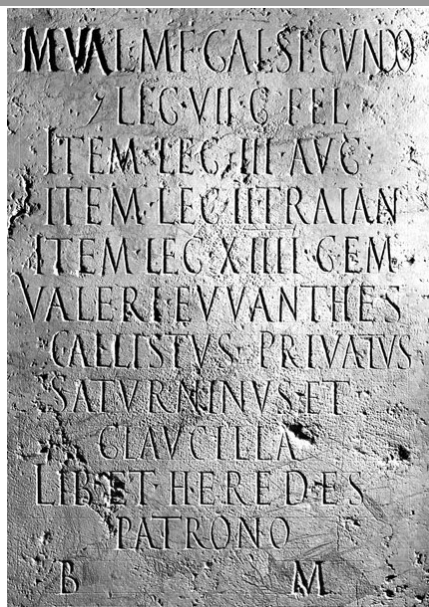 M·VAL·M·F·GAL·SECVNDO
7 LEG·VII·G·FEL·
ITEM·LEG·III·AVG·
ITEM·LEG·II·TRAIAN
ITEM·LEG·XIIII·GEM
VALERI·EVVANTHES
CALLISTVS·PRIVATVS
SATVRNINVS·ET
GLAVCILLA
LIB·ET·HEREDES
PATRONO
B M